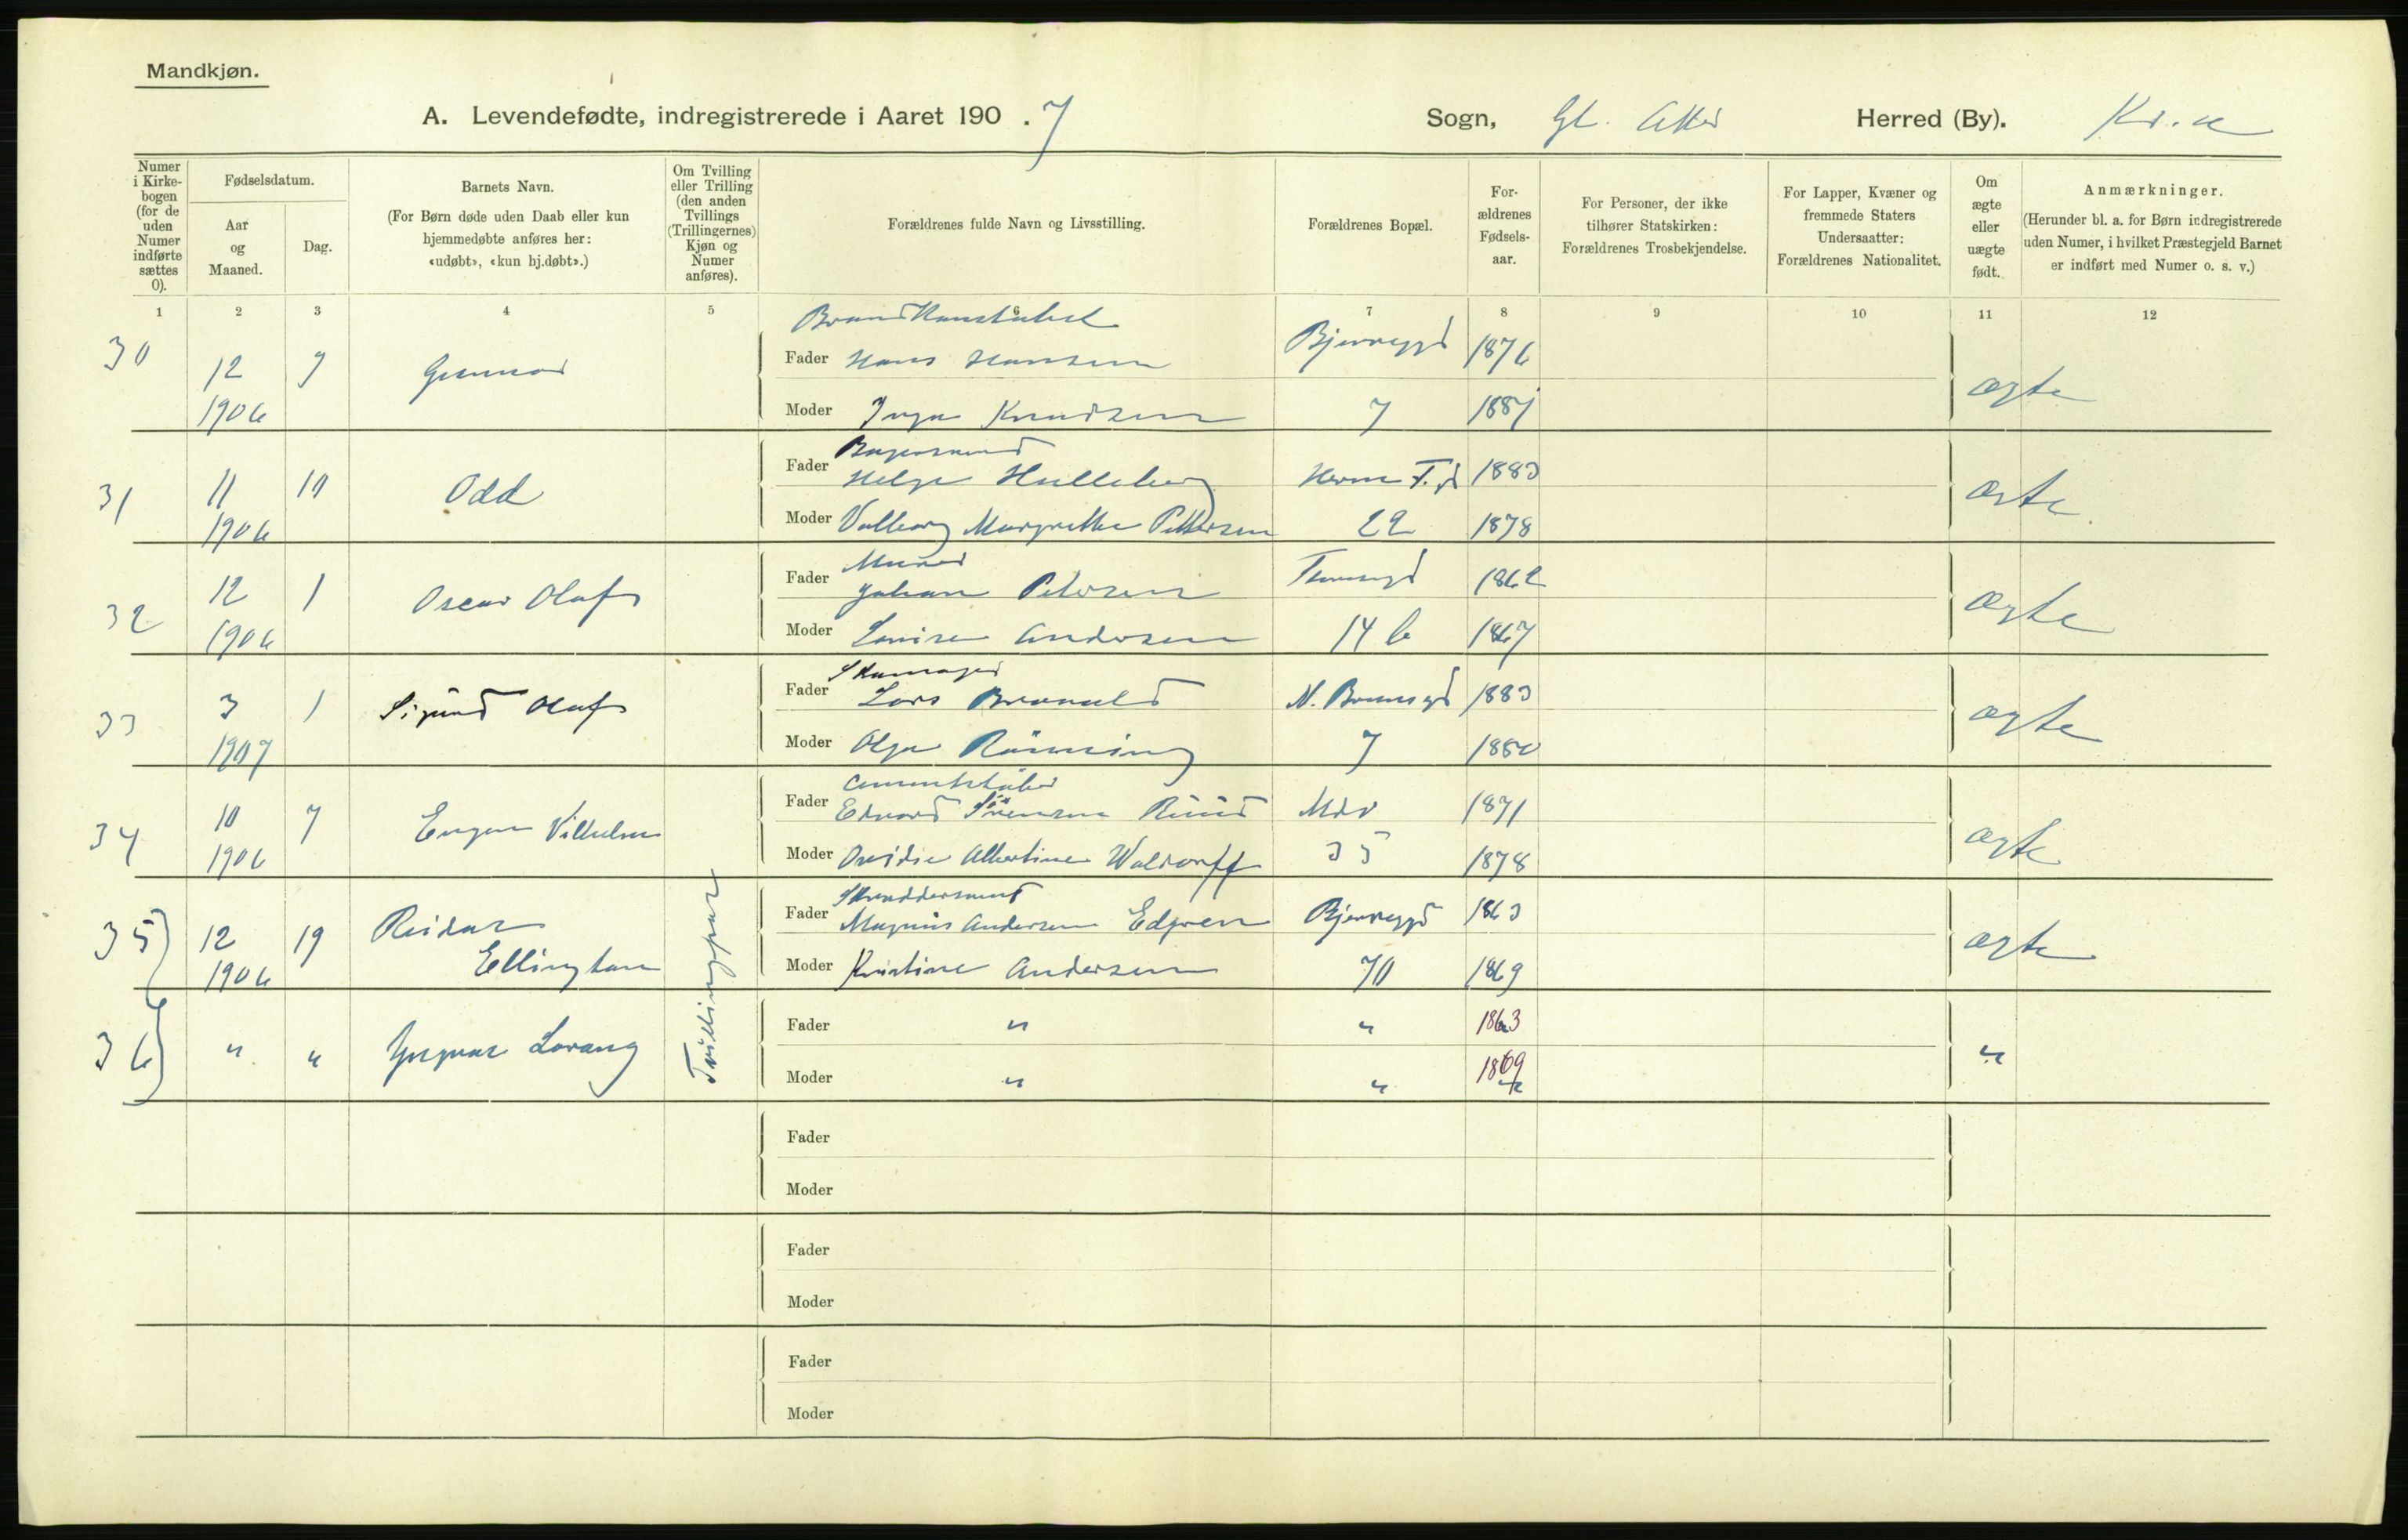 Mandkjøn.
A. Levendefødte, indregistrerede i Aaret 190 . 7 Sogn, Gl. Aker Herred (By). Kr.a
Numer i Kirkebogen (for de uden Numer indførte sættes 0).
Fødselsdatum.
Aar og Maaned.
Dag.
Barnets Navn.
(For Børn døde uden Daab eller kun hjemmedøbte anføres her: «udøbt», «kun hj.døbt».)
Om Tvilling eller Trilling (den anden Tvillings (Trillingernes) Kjøn og Numer anføres).
Forældrenes fulde Navn og Livsstilling.
Forældrenes Bopæl.
Forældrenes Fødselsaar.
For Personer, der ikke tilhører Statskirken: Forældrenes Trosbekjendelse.
For Lapper, Kvæner og fremmede Staters Undersaatter: Forældrenes Nationalitet.
Om ægte eller uægte født.
Anmærkninger.
(Herunder bl. a. for Børn indregistrerede uden Numer, i hvilket Præstegjeld Barnet er indført med Numer o. s. v.)
1 2 3 4 5 6 7 8 9 10 11 12
Brandkonstabel
30 12 1906 7 Gunnar Fader Hans Hansen Bjerregd 1876 ægte
Moder Inga Knudsen 7 1881
Bagersvend
31 11 1906 10 Odd Fader Helge Hulleberg Herm F. gd 1883 ægte
Moder Valborg Margrethe Pettersen 22 1878
Murer
32 12 1906 1 Oscar Olaf Fader Johan Petersen 1862 ægte
Moder Lovise Andersen 14 b 1867
Skomager
33 3 1907 1 Sigurd Olaf Fader Lars N. Brunsgd 1883 ægte
Moder Olga Rønning 7 1880
34 10 1906 7 Eugen Vilhelm Fader Edvard Sörensen Ruud Mdv 1871 ægte
Moder Ovidie Albertine Waldorff 35 1878
Skræddersvend
35 12 1906 19 Reidar Ellington Tvillingpar Fader Magnus Andersen Edgren Bjerregd 1863 ægte
Moder Kristine Andersen 70 1869
36 " " Yngvar Lorang Fader " " 1863 "
Moder " " 1869
Fader
Moder
Fader
Moder
Fader
Moder